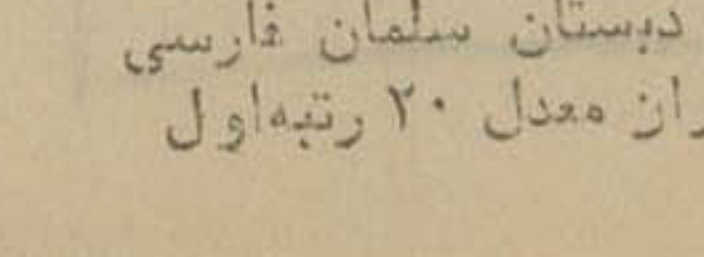 دبستان سلمان فارسی
ران معدل ۲۰ رتبه‌اول